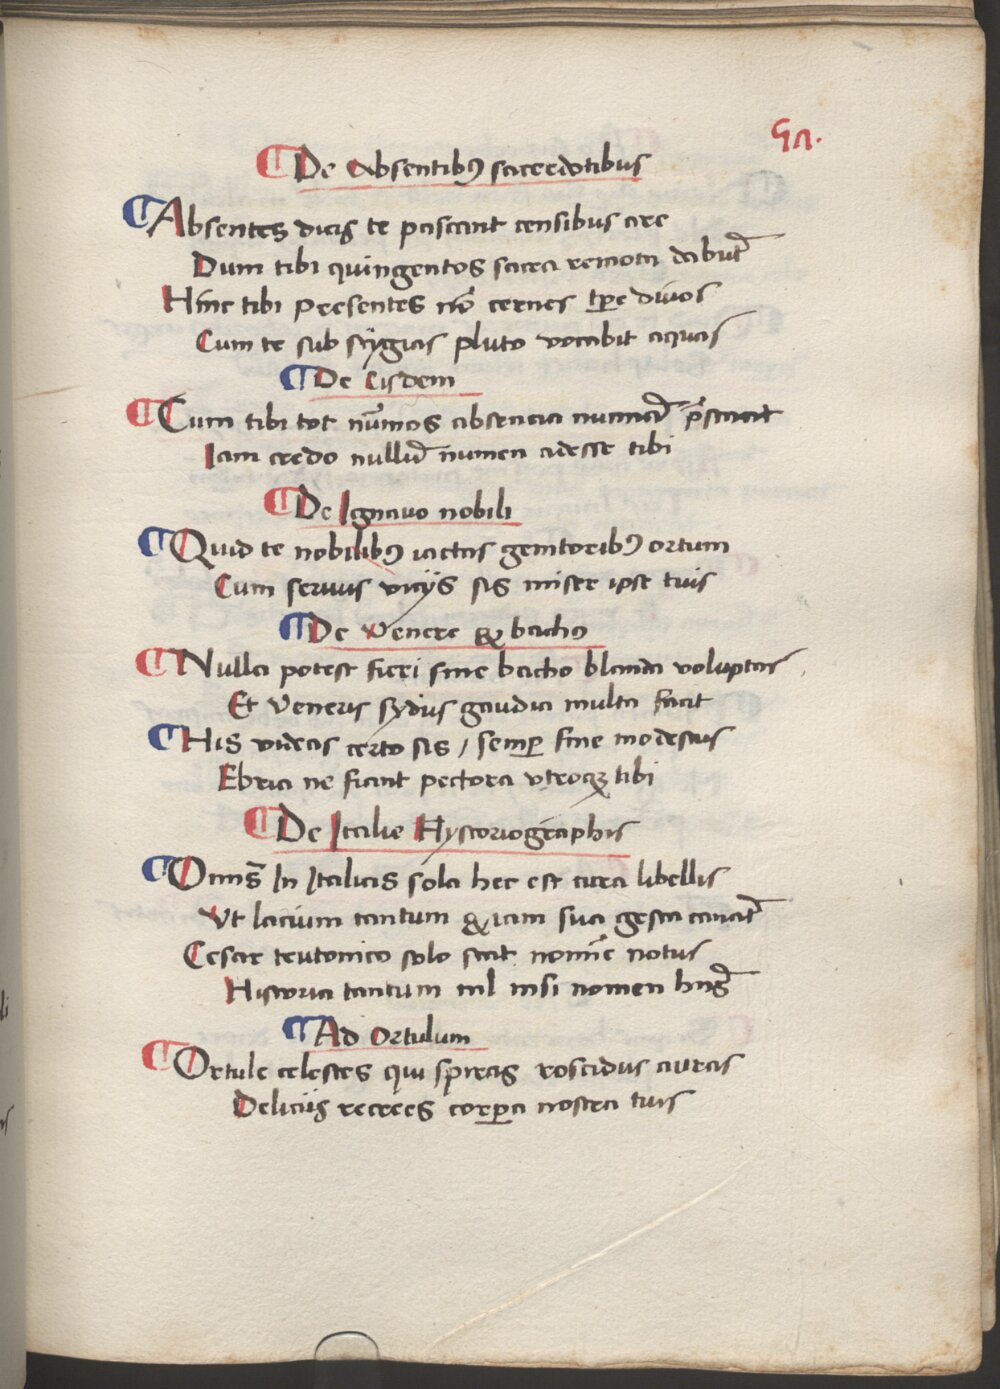 52.
De Absentibꝰ sacerdotibus
Absentes dicis te pascant censibus are
Dum tibi quingentos sacra remota dabūt
Hinc tibi presentes nō cernes tꝑe divos
Cum te sub stygias pluto vocabit aquas
De Eisdem
Cum tibi tot nūmos absencia p̄stant
Iam credo nullū numen adesse tibi
De Ignavo nobili
Quid te nobilibꝰ iactas genitoribꝰ ortum
Cum servus vicijs sis miser ipse tuis
De Venere & bacho
Nulla potest fieri sine bacho blanda voluptas
Et Veneris sydus gaudia multa facit
His videas certo sis / semꝑ sine modestus
Ebria ne fiant pectora vtroqꝫ tibi
De Italie Hystoriographis
Omīs In Italicis sola hec est cura libellis
Vt lacium tantum & iam sua gesta canāt
Cesar teutonico solo stat nomīe notus
Historia tantum nil nisi nomen hn̄s
Ad Ortulum
Ortule celestes qui spiras roscidus auras
Delicijs recrees corꝑa nostra tuis